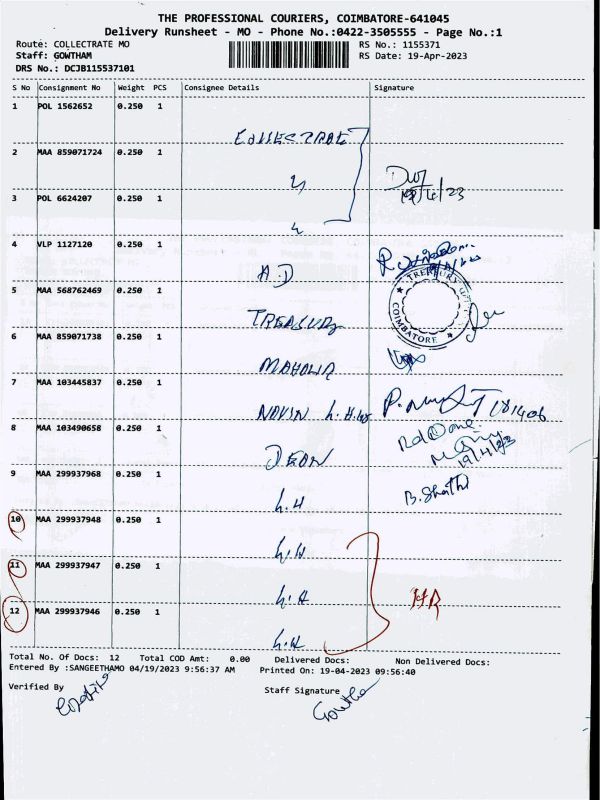 THE PROFESSIONAL COURIERS, COIMBATORE-641045
Delivery Runsheet - MO - Phone No.:0422-3505555 - Page No.:1
Route: COLLECTRATE MO RS No.: 1155371
Staff: GOWTHAM RS Date: 19-Apr-2023
DRS No.: DCJB115537101
S No Consignment No Weight PCS Consignee Details Signature
1 POL 1562652 0.250 1
COLLECTRATE
2 MAA 859071724 0.250 1
19/4/23
3 POL 6624207 0.250 1
4 VLP 1127120 0.250 1
A.D
TREASURY
COIMBATORE
5 MAA 568762469 0.250 1
TREASURY
6 MAA 859071738 0.250 1
7 MAA 103445837 0.250 1
181406
8 MAA 103490658 0.250 1
DEAN
19/4/23
9 MAA 299937968 0.250 1
L.H
10 MAA 299937948 0.250 1
L.H
11 MAA 299937947 0.250 1
L.H HR
12 MAA 299937946 0.250 1
L.H
Total No. Of Docs: 12 Total COD Amt: 0.00 Delivered Docs: Non Delivered Docs:
Entered By :SANGEETHAMO 04/19/2023 9:56:37 AM Printed On: 19-04-2023 09:56:40
Verified By Staff Signature
Gowtham